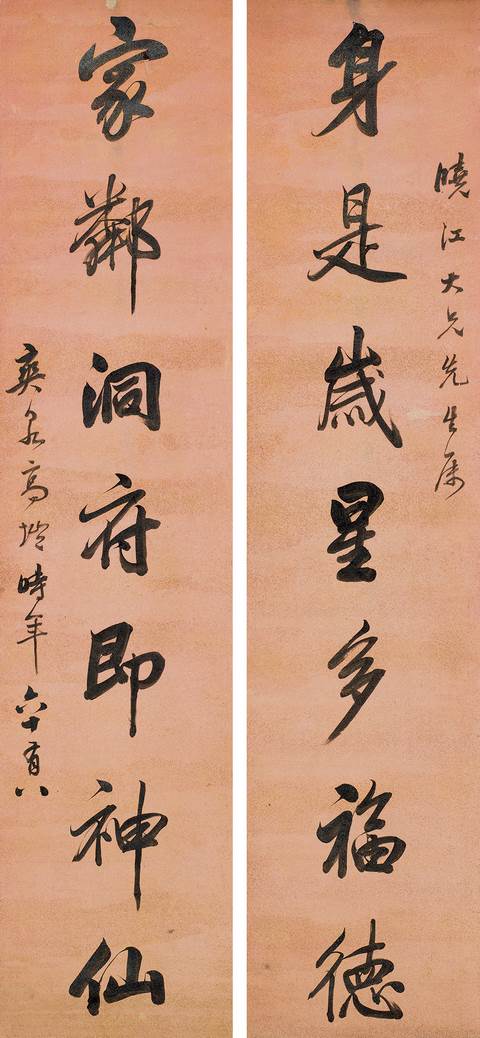 曉江大兄先生属
身是歲星多福德
家鄰洞府即神仙
爽泉高塏時年六十有八